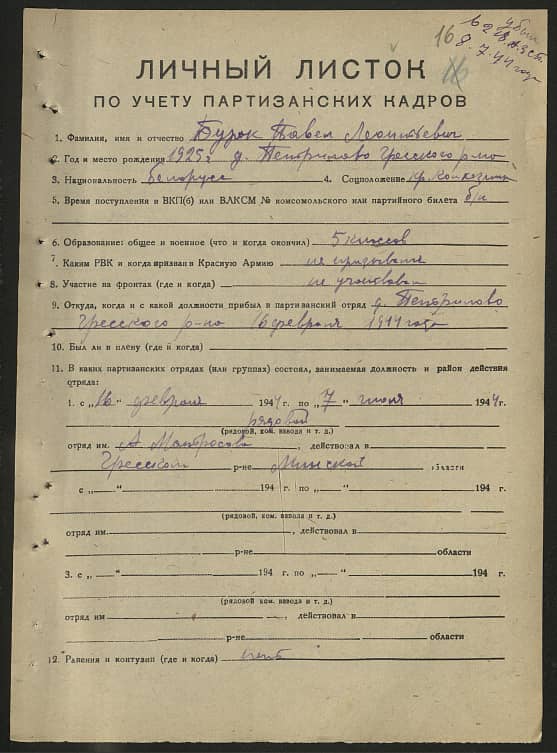 16 убыл
в 28 з.с.п.
8.7.44 года
ЛИЧНЫЙ ЛИСТОК 16
ПО УЧЕТУ ПАРТИЗАНСКИХ КАДРОВ
1. Фамилия, имя и отчество Бурок Павел Леонтьевич
2. Год и место рождения 1925 г д. Петрилово Гресского р-на
3. Национальность белорусс 4. Соцположение кр. Колхозник
5. Время поступления в ВКП(б) или ВЛКСМ № комсомольского или партийного билета б/п
6. Образование: общее и военное (что и когда окончил) 5 классов
7. Каким РВК и когда призван в Красную Армию не призывался
8. Участие на фронтах (где и когда) не участвовал
9. Откуда, как и с какой должности прибыл в партизанский отряд д. Петрилово
Гресского р-на 16 февраля 1944 года
10. Был ли в плену (где и когда)
11. В каких партизанских отрядах (или группах) состоял, занимаемая должность и район действия
отряда:
1. с „16" февраля 1944 г. по „7" июля 1944 г.
рядовой
(рядовой, ком. взвода и т. д.)
отряд им. А Матросова, действовал в
Гресском р-не Минской области
с „—" 194 г. по „—" 194 г.
(рядовой, ком. взвода и т. д.)
отряд им , действовал в
р-не области
3. с „—" 194 г. по „—" 194 г.
(рядовой, ком. взвода и т. д.)
отряд им , действовал в
р-не области
12. Ранения и контузии (где и когда) нет